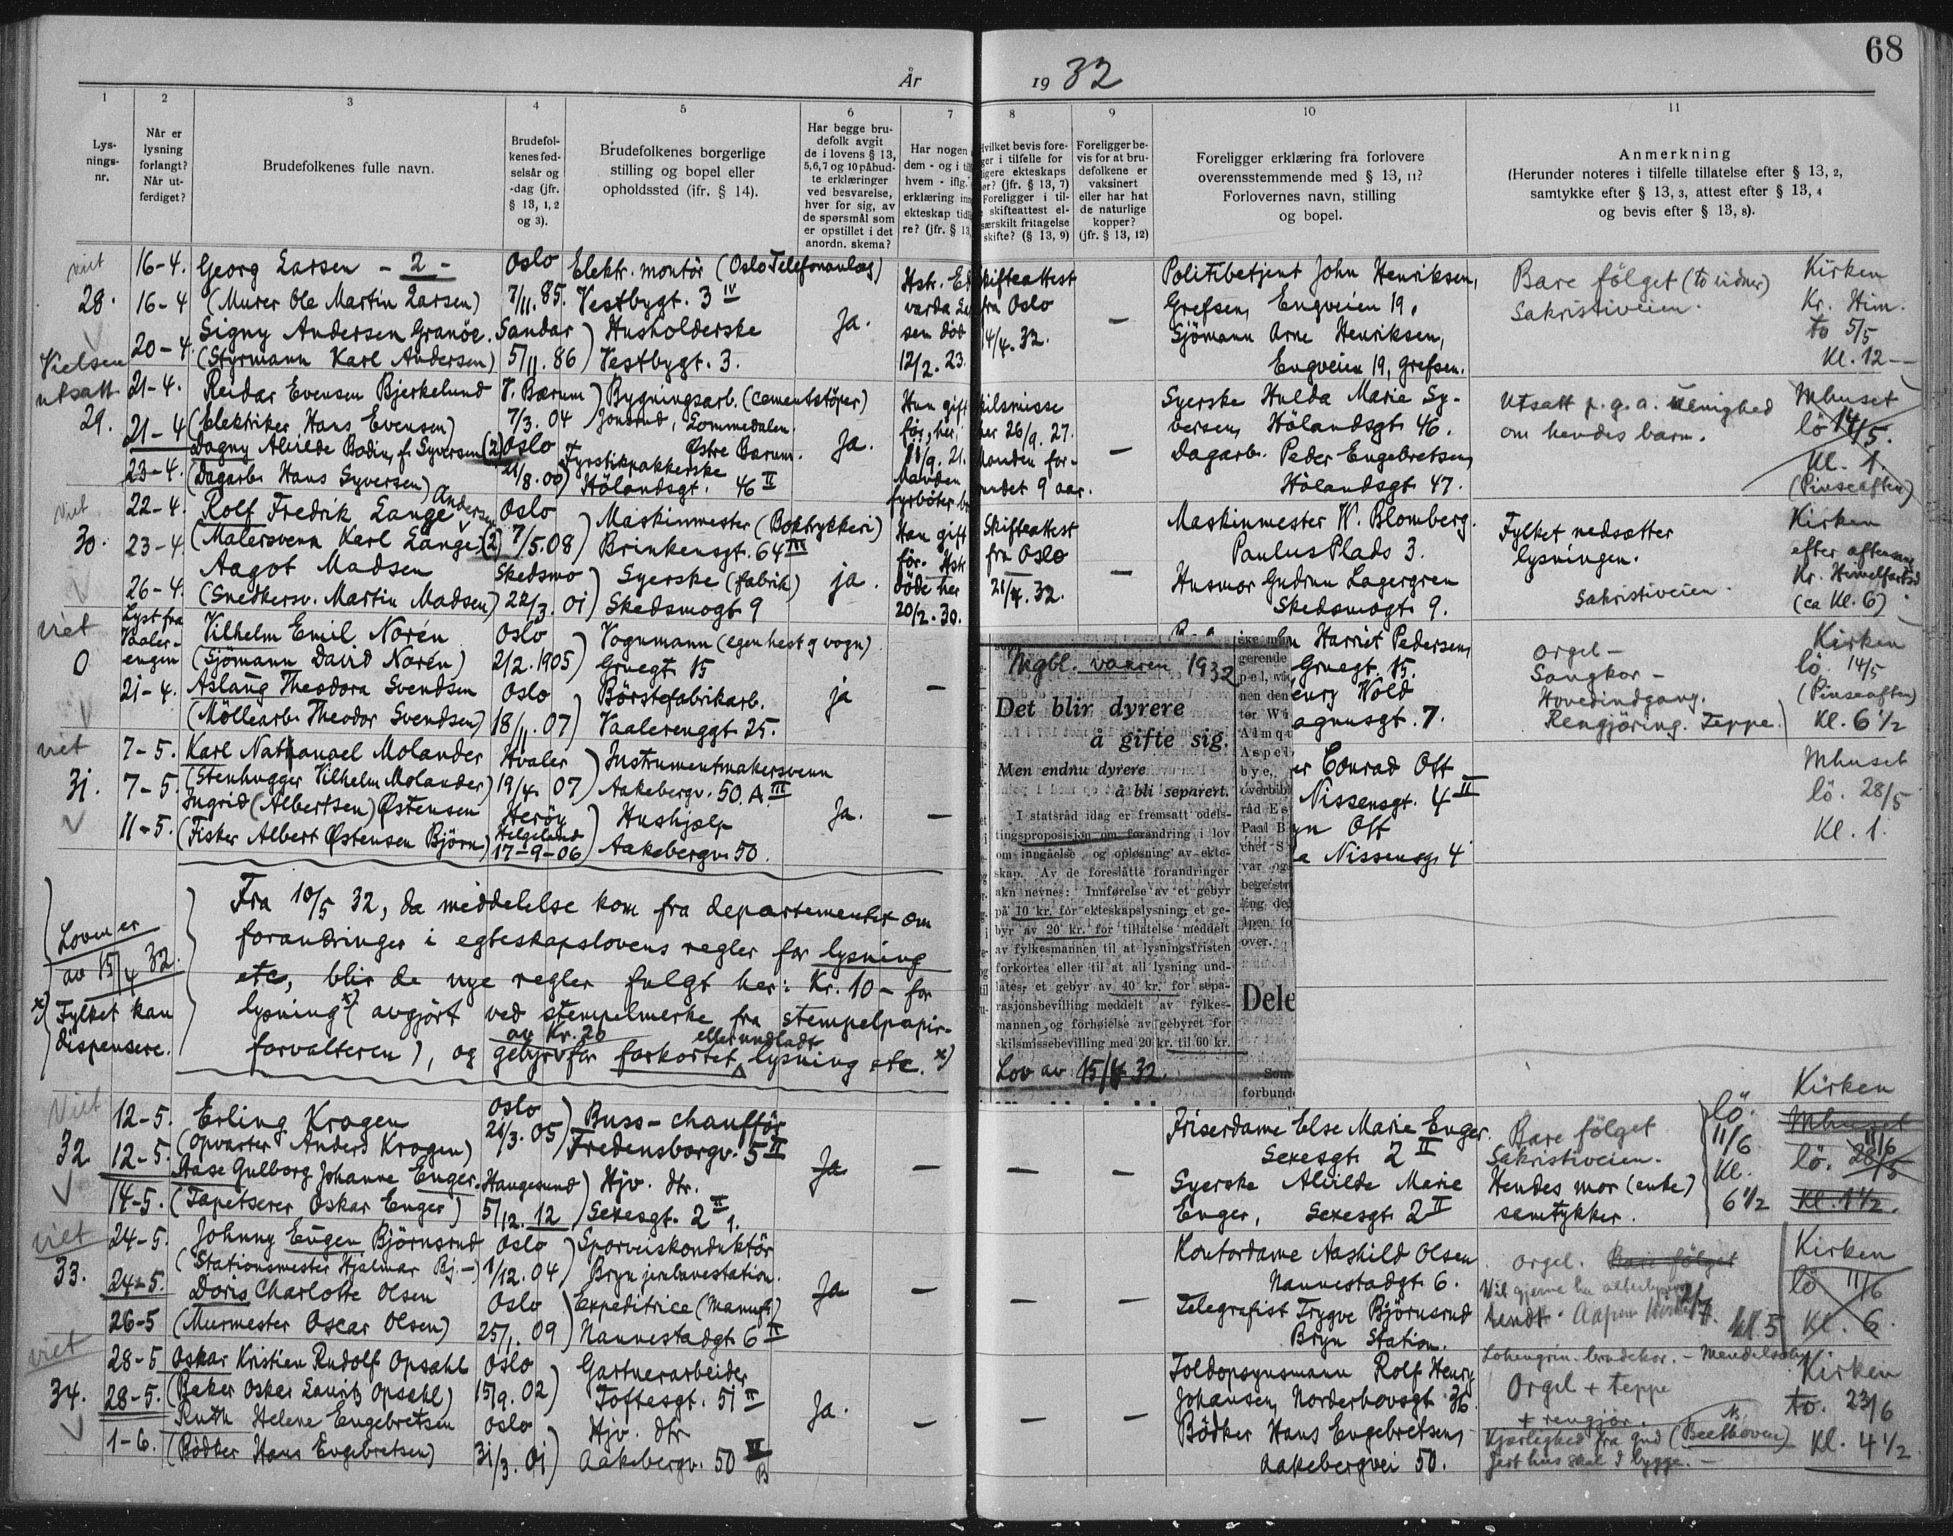 68
År 1932
1 2 3 4 5 6 7 8 9 10 11
Lys-
nings-
nr.
Når er
lysning
forlangt?
Når ut-
ferdiget?
Brudefolkenes fulle navn.
Brudefol-
kenes fød-
selsår og
-dag (jfr.
§ 13, 1, 2
og 3).
Brudefolkenes borgerlige
stilling og bopel eller
opholdssted (ifr. § 14).
Har begge bru-
defolk avgit
de i lovens § 13,
5,6,7 og 10 påbud-
te erklæringer
ved besvarelse,
hver for sig, av
de spørsmål som
er opstillet i det
anordn. skema?
Har nogen
dem - og i til
hvem - iflg.
erklæring inn
ekteskap tidl
re? (jfr. § 13,
Hvilket bevis fore-
ger i tilfelle for
ligere ekteskaps
er? (jfr. § 13, 7)
Foreligger i til-
skifteattest el-
særskilt fritagelse
skifte? (§ 13, 9)
Foreligger be-
vis for at bru-
defolkene er
vaksinert
eller har hat
de naturlige
kopper?
(jfr. § 13, 12)
Foreligger erklæring fra forlovere
overensstemmende med § 13, 11?
Forlovernes navn, stilling
og bopel.
Anmerkning
(Herunder noteres i tilfelle tillatelse efter § 13, 2,
samtykke efter § 13, 3, attest efter § 13, 4
og bevis efter § 13, 8).
viet
28.
16-4.
16-4
20-4.
Georg Larsen - 2 -
(Murer Ole Martin Larsen)
Signy Andersen Granøe.
(Styrmann Karl Andersen)
Oslo
7/11. 85.
Sandar
5/11. 86
Elektr. montör (Oslo Telefonanlæg)
Vestbygt. 3 IV
Husholderske
Vestbygt. 3.
Ja.
sen död
12/2. 23.
Skifteattest
fra Oslo
14/4. 32.
-
Politibetjent John Henriksen,
Grefsen, Engveien 19,
Sjömann Arne Henriksen,
Engveien 19, Grefsen.
Bare fölget (to vidner)
Sakristiveien.
Kirken
Kr. Him.
to 5/5
Kl. 12-
Vielsen
utsatt
29.
21-4.
21-4
23-4.
Reidar Evensen Bjerkelund
(Elektriker Hans Evensen)
Dagny Alvilde Bodin, f. Syversen (2)
(Dagarb. Hans Syversen)
V. Bærum
7/3. 04
Oslo
21/8. 00
Bygningsarb. (cementstöper)
Jonsrud, Lommedalen.
Østre Bærum.
Fyrstikpakkerske
Hölandsgt. 46 II
Ja.
Hun gift
før, her
11/9. 21.
Manden
fyrböter
Skilsmisse
her 26/9. 27.
Manden for-
svundet 9 aar.
-
Syerske Hulda Marie Sy-
versen, Hölandsgt 46.
Dagarb. Peder Engebretsen,
Hölandsgt 47.
Utsatt p.g.a. uenighed
om hendes barn.
Mhuset
lö 14/5.
Kl. 1.
(Pinseaften)
viet
30.
22-4.
23-4
26-4.
Rolf Fredrik Lange Andersen
(Malersvenn Karl Lange) (2)
Aagot Madsen
(Snedkersv. Martin Madsen)
Oslo
7/5. 08
Skedsmo
22/3. 01
Maskinmester (Boktrykkeri)
Brinkensgt. 64 III
Syerske (fabrik)
Skedsmogt 9
ja.
Han gift
för. Hstr.
döde her
20/2. 30.
Skifteattest
fra Oslo
21/4. 32.
-
Maskinmester W. Blomberg.
Paulus Plads 3.
Husmor Gudrun Lagergren
Skedsmogt 9.
Fylket nedsætter
lysningen.
Sakristiveien.
Kirken
efter aftensang
Kr. Himmelfartsd.
(ca Kl. 6)
viet
0
Lyst fra
Vaaler-
engen
21-4.
Vilhelm Emil Norén
(Sjömann David Norén)
Aslaug Theodora Svendsen
(Möllearb. Theodor Svendsen)
Oslo
2/2. 1905
Oslo
18/11. 07
Vognmann (egen hest og vogn)
Gruegt 15
Børstefabrikarb.
Vaalerenggt 25.
ja
-
Harriet Pedersen,
Gruegt. 15.
Henry Wold
Magnusgt. 7.
Orgel -
Sangkor -
Hovedindgang.
Rengjöring. Teppe.
Kirken
lö. 14/5
(Pinseaften)
Kl. 6 1/2
viet
31.
7-5.
7-5.
11-5.
Karl Nathanael Molander
(Stenhugger Vilhelm Molander)
Ingrid (Albertsen) Østensen
(Fisker Albert Østensen Björn)
Hvaler
19/4. 07
Herøy
Helgeland
17-9-06
Instrumentmakersvenn
Aakebergv. 50. A III
Hushjælp
Aakebergv. 50.
Ja.
-
Conrad Oft
Nissensgt. 4 II
Oft
Nissensg. 4
Mhuset
lö. 28/5
Kl. 1.
Mgbl. vaaren 1932
Det blir dyrere
å gifte sig.
Men endnu dyrere
å bli separert.
I statsråd idag er fremsatt odels-
tingsproposisjon om forandring i lov
om inngåelse og opløsning av ekte-
skap. Av de foreslåtte forandringer
akn nevnes: Innførelse av et gebyr
på 10 kr. for ekteskapslysning; et ge-
byr av 20 kr. for tillatelse meddelt
av fylkesmannen til at lysningsfristen
forkortes eller til at all lysning und-
lates, et gebyr av 40 kr. for sepa-
rasjonsbevilling meddelt av fylkes-
mannen, og forhøielse av gebyret for
skilsmissebevilling med 20 kr. til 60 kr.
Lov av 15/4 32.
gerende
nen den
Almqu
Aspel
bye,
overbibl
råd Es
Paul B
chef S
var og
begeistr
ling, de
åpen to
over.
Dele
Som
forbund
Loven er
av 15/4 32.
x) Fylket kan
dispensere.
Fra 10/5 32, da meddelelse kom fra departementet om
forandringer i egteskapslovens regler for lysning
etc, blir de nye regler fulgt her: Kr. 10 - for
lysning x) avgjört ved stempelmerke fra stempelpapir-
forvalteren), og gebyr av Kr. 20 for forkortet eller undladt lysning etc. x)
Viet
32
12-5.
12-5.
14-5.
Erling Krogen
(Opvarter Anders Krogen)
Aase Gulborg Johanne Enger.
(Tapetserer Oskar Enger)
Oslo
21/3. 05
Haugesund
5/12. 12
Buss-chaufför
Fredensborgv. 5 II
Hjv. dtr.
Sexesgt. 2 II
Ja
- - -
Friserdame Else Marie Enger.
Sexesgt 2 II
Syerske Alvilde Marie
Enger, Sexesgt 2 II
Bare fölget
Sakristiveien.
Hendes mor (enke)
samtykker.
lö.
11/6
Kl.
6 1/2
Kirken
Mhuset
lö. 28/5 11/6
Kl. 1 1/2.
viet
33.
24-5.
24-5.
26-5
Johnny Eugen Björnsrud
(Stationsmester Hjalmar Bj.-)
Doris Charlotte Olsen
(Murmester Oscar Olsen)
Oslo
1/12. 04
Oslo
25/1. 09
Sporveiskonduktör
Bryn jernbanestation.
Expeditrice (Manuf.)
Nannestadgt 6 II
Ja
- - -
Kontordame Aashild Olsen
Nannestadgt 6.
Telegrafist Trygve Björnsrud
Bryn Station.
Orgel. Bare fölget
Vil gjerne ha alterlysene
tendt.
Lohengrin. brudekor. - Mendelsohn.
2/7
Kl. 5
Kirken
lö 11/6
Kl. 6.
viet
34.
28-5
28-5.
1-6.
Oskar Kristian Rudolf Opsahl
(Baker Oskar Laurits Opsahl)
Ruth Helene Engebretsen
(Bödker Hans Engebretsen)
Oslo
15/9. 02
Oslo
31/3. 01
Gartnerarbeider
Toftesgt. 51 II
Hjv. dtr
Aakebergv. 50 VI
B
Ja.
- - -
Toldopsynsmann Rolf Henry
Johansen, Norderhovsgt 36.
Bödker Hans Engebretsen,
Aakebergvei 50.
Orgel + teppe
+ rengjör.
Kjærlighed fra Gud (Beethoven)
Jert hus skal I bygge. -
Kirken
to. 23/6
Kl. 4 1/2